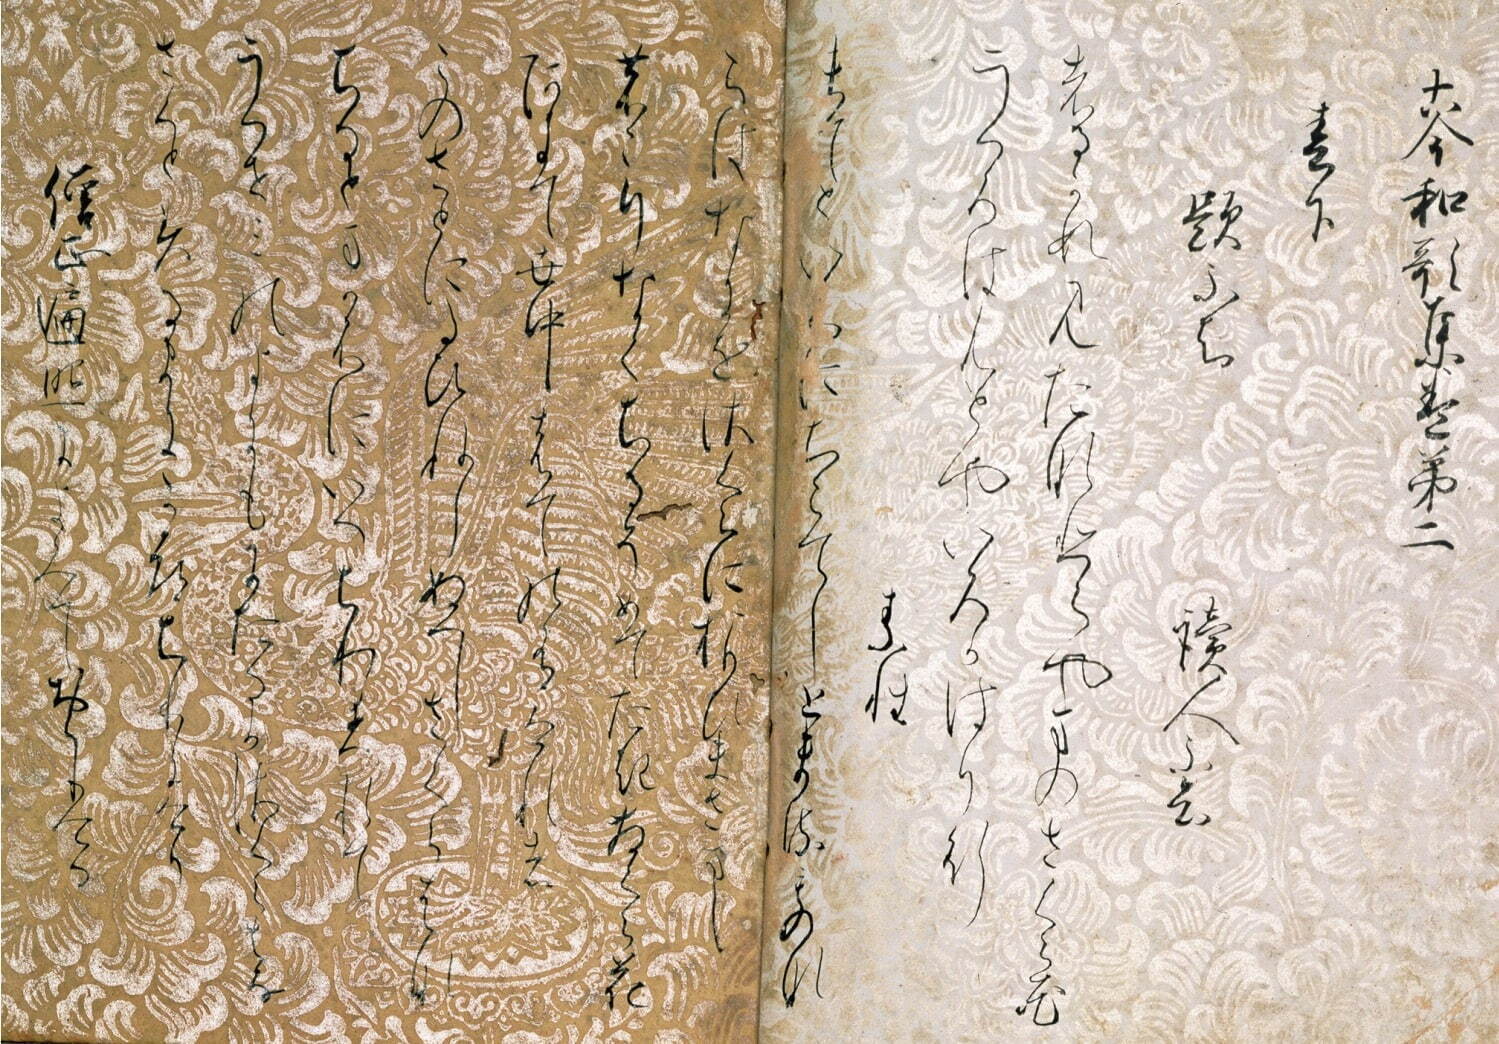 古今和歌集巻第二
春下
題不知
讀人不知
春かすみたなひくやまのさくら花
うつろはんとやいろかはり行
素性
まてといふにちらてしとまるものな
らはなにをさくらにおもひまさまし
のこりなくちるそめてたきさくら花
ありて世中はてのうけれは
このさとにたひねしぬへしさくらはな
ちりのまかひにいへちわすれて
うつせみのよにもにたるかはなさくらさ
くとみしまにかつちりにけり
僧正遍昭によみておくりける